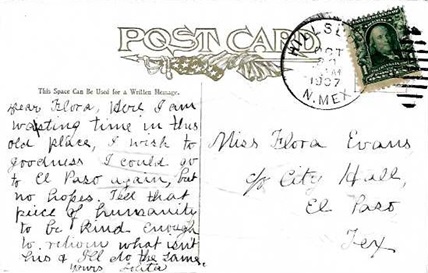 POST CARD
HILLSB
OCT
1907
N. MEX.
This Space Can Be Used for a Written Message.
Dear Flora, Here I am
wasting time in this
old place, I wish to
goodness I could go
to El Paso again, but
no hopes. Tell that
piece of humanity
to be kind enough
to return what isn't
his & I'll do the same.
Yours
Miss Flora Evans
c/o City Hall,
El Paso
Tex